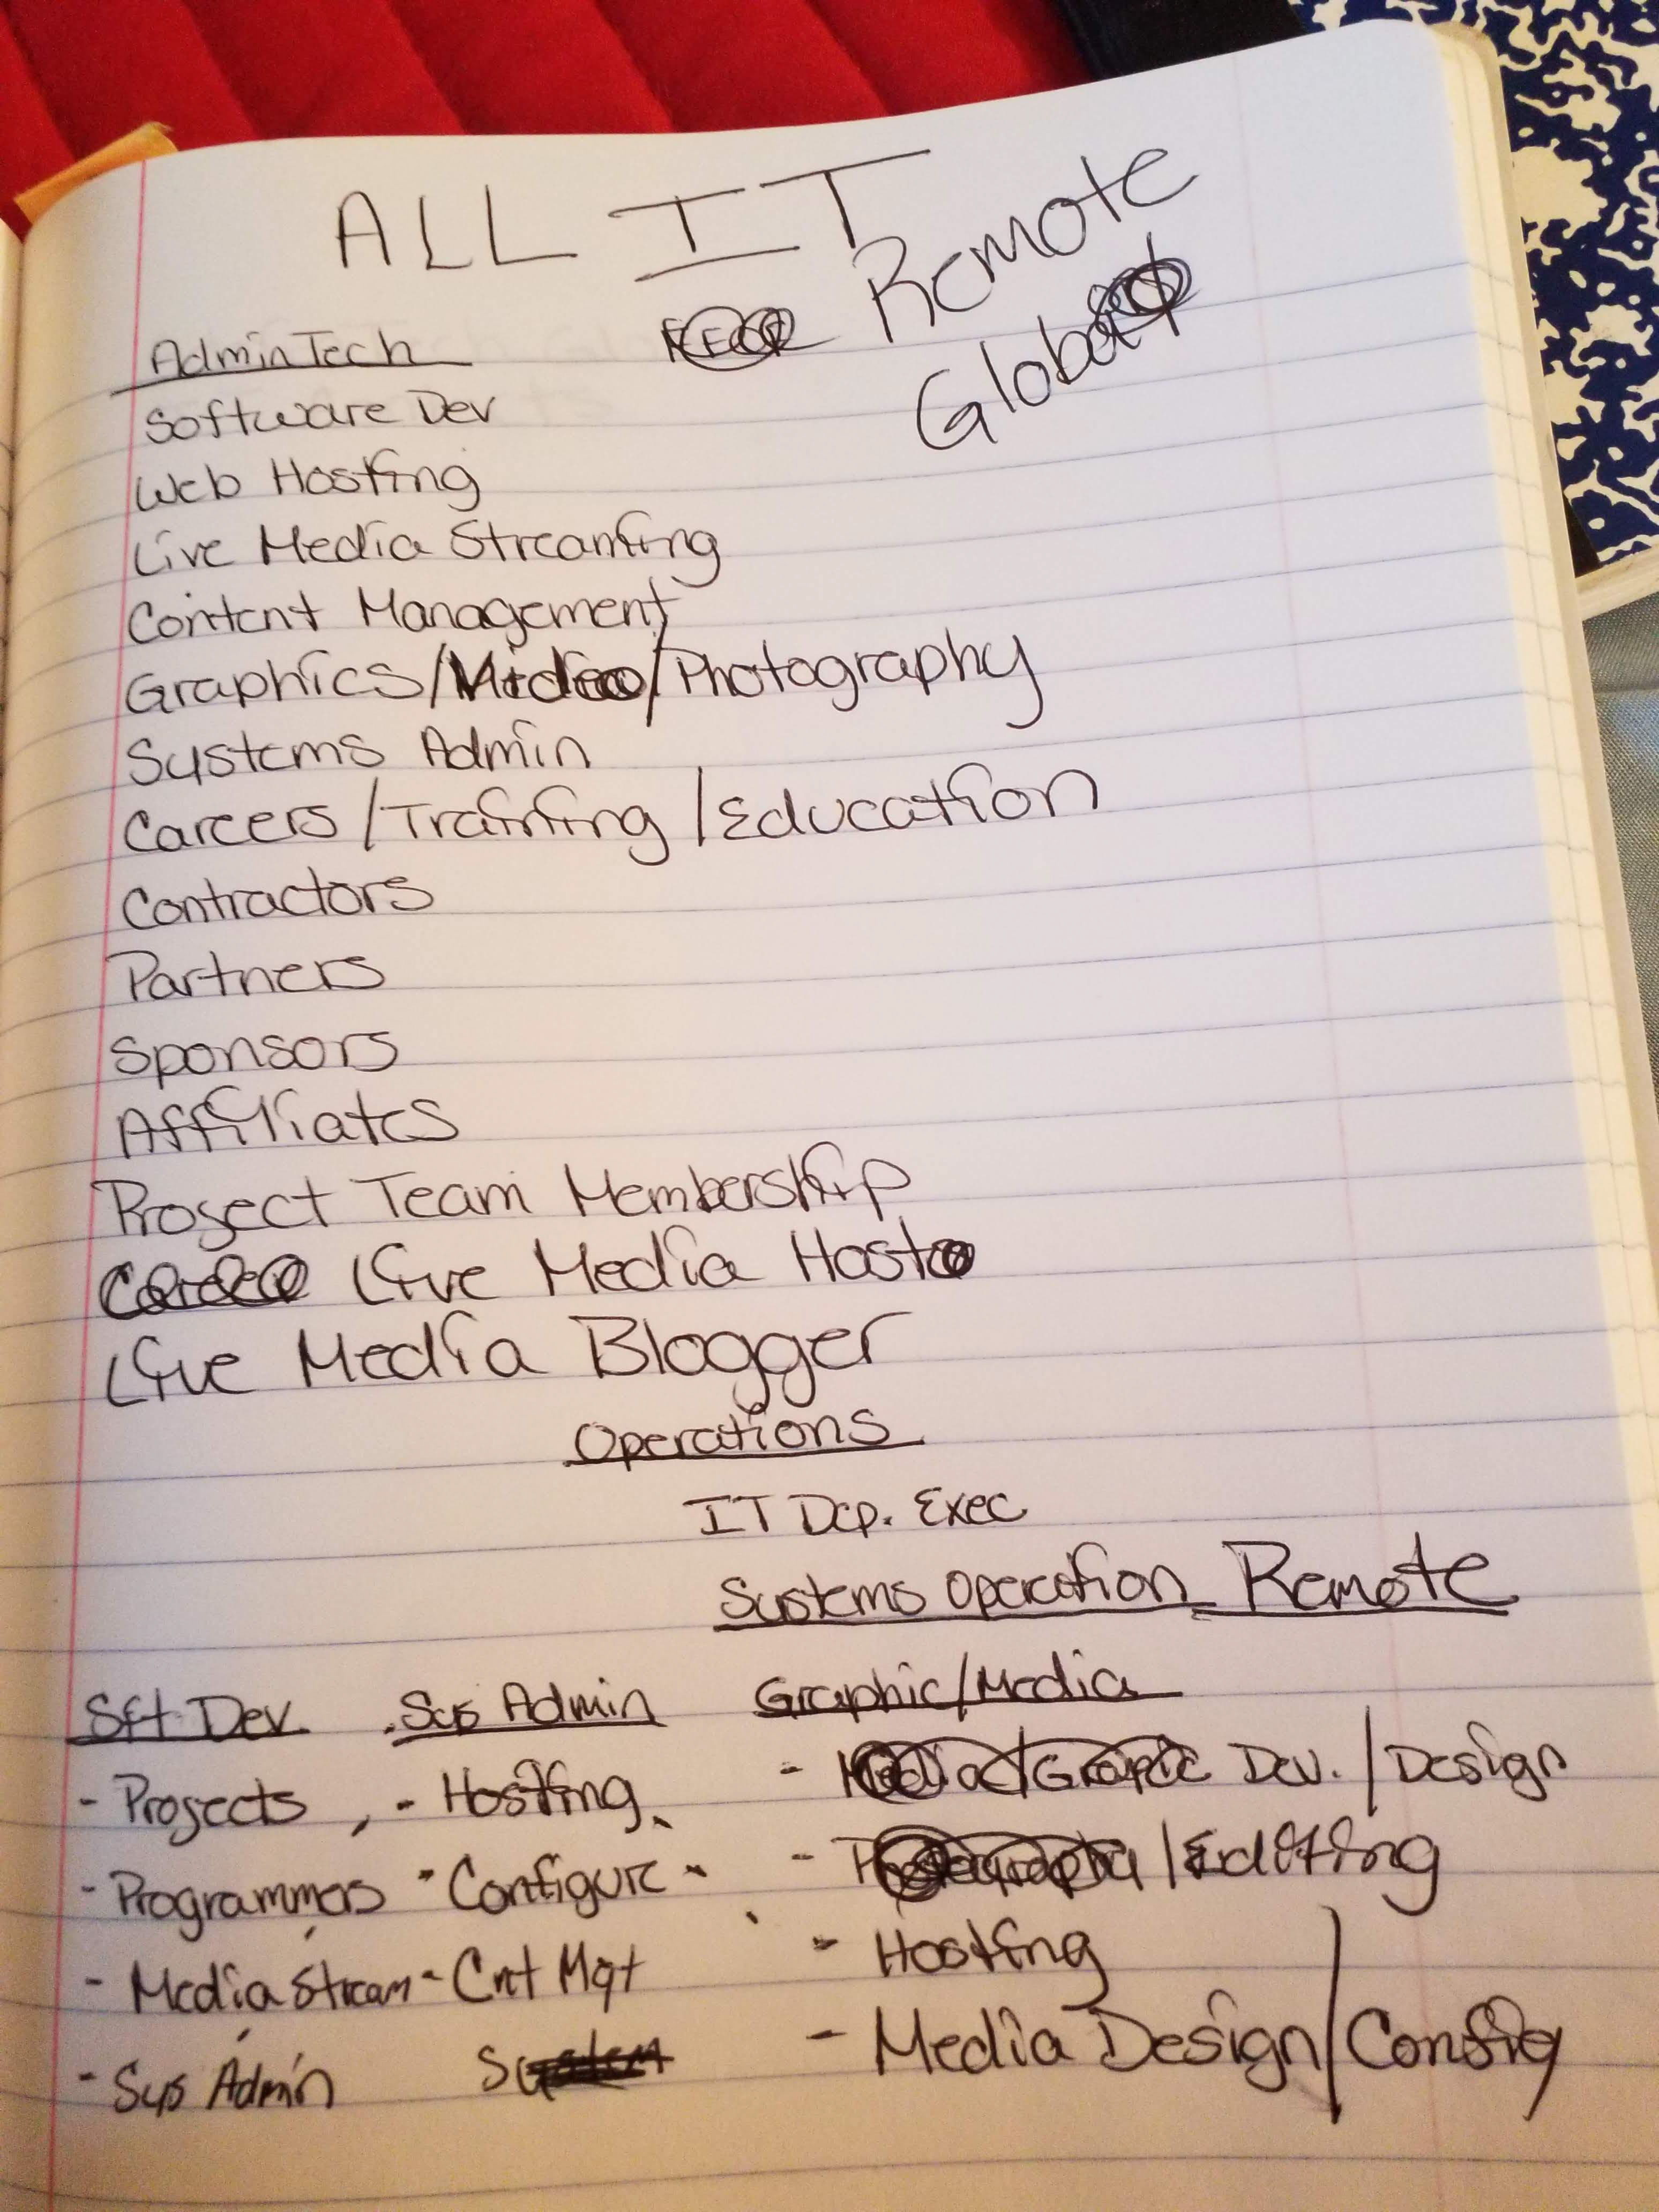 ALL IT
Remote
Global
Admin Tech
Software Dev
Web Hosting
Live Media Streaming
Content Management
Graphics/Video/Photography
Systems Admin
Careers/Training/Education
Contractors
Partners
Sponsors
Affiliates
Project Team Membership
Live Media Host
Live Media Blogger
Operations
IT Dep. Exec
Systems Operation Remote
Sft Dev. Sys Admin Graphic/Media
- Projects - Hosting - Media/Graphic Dev. / Design
- Programmers - Configure - Photography / Editing
- Media Stream - Cnt Mgt - Hosting
- Sys Admin - Media Design/Config